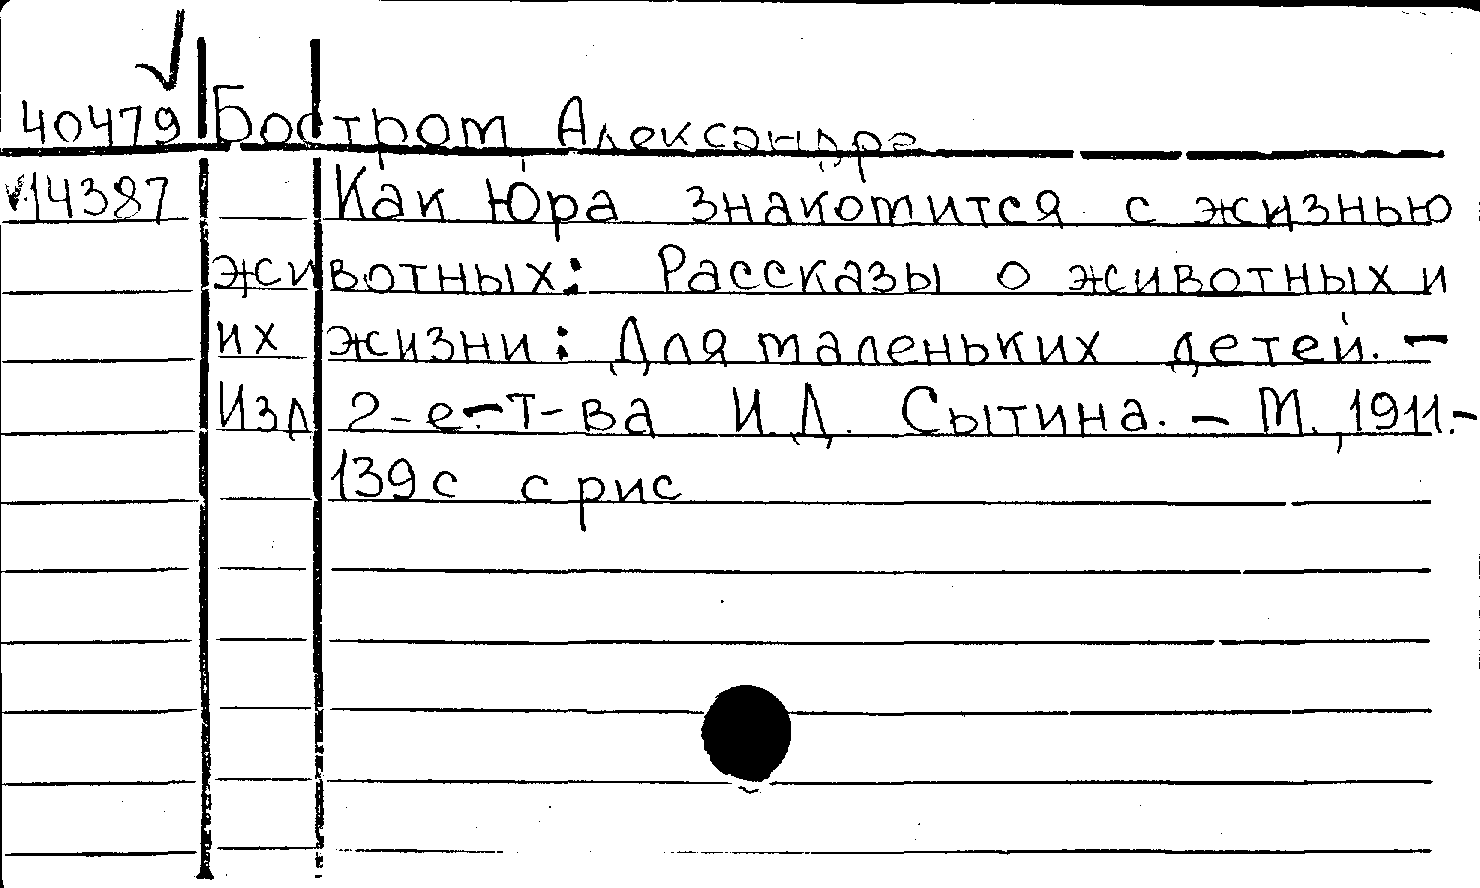 40479 Бостром Александра
14387 Как Юра знакомится с жизнью
животных: Рассказы о животных и
их жизни: Для маленьких детей. –
Изд 2-е.–Т-ва И.Д. Сытина. – М., 1911.–
139с с рис